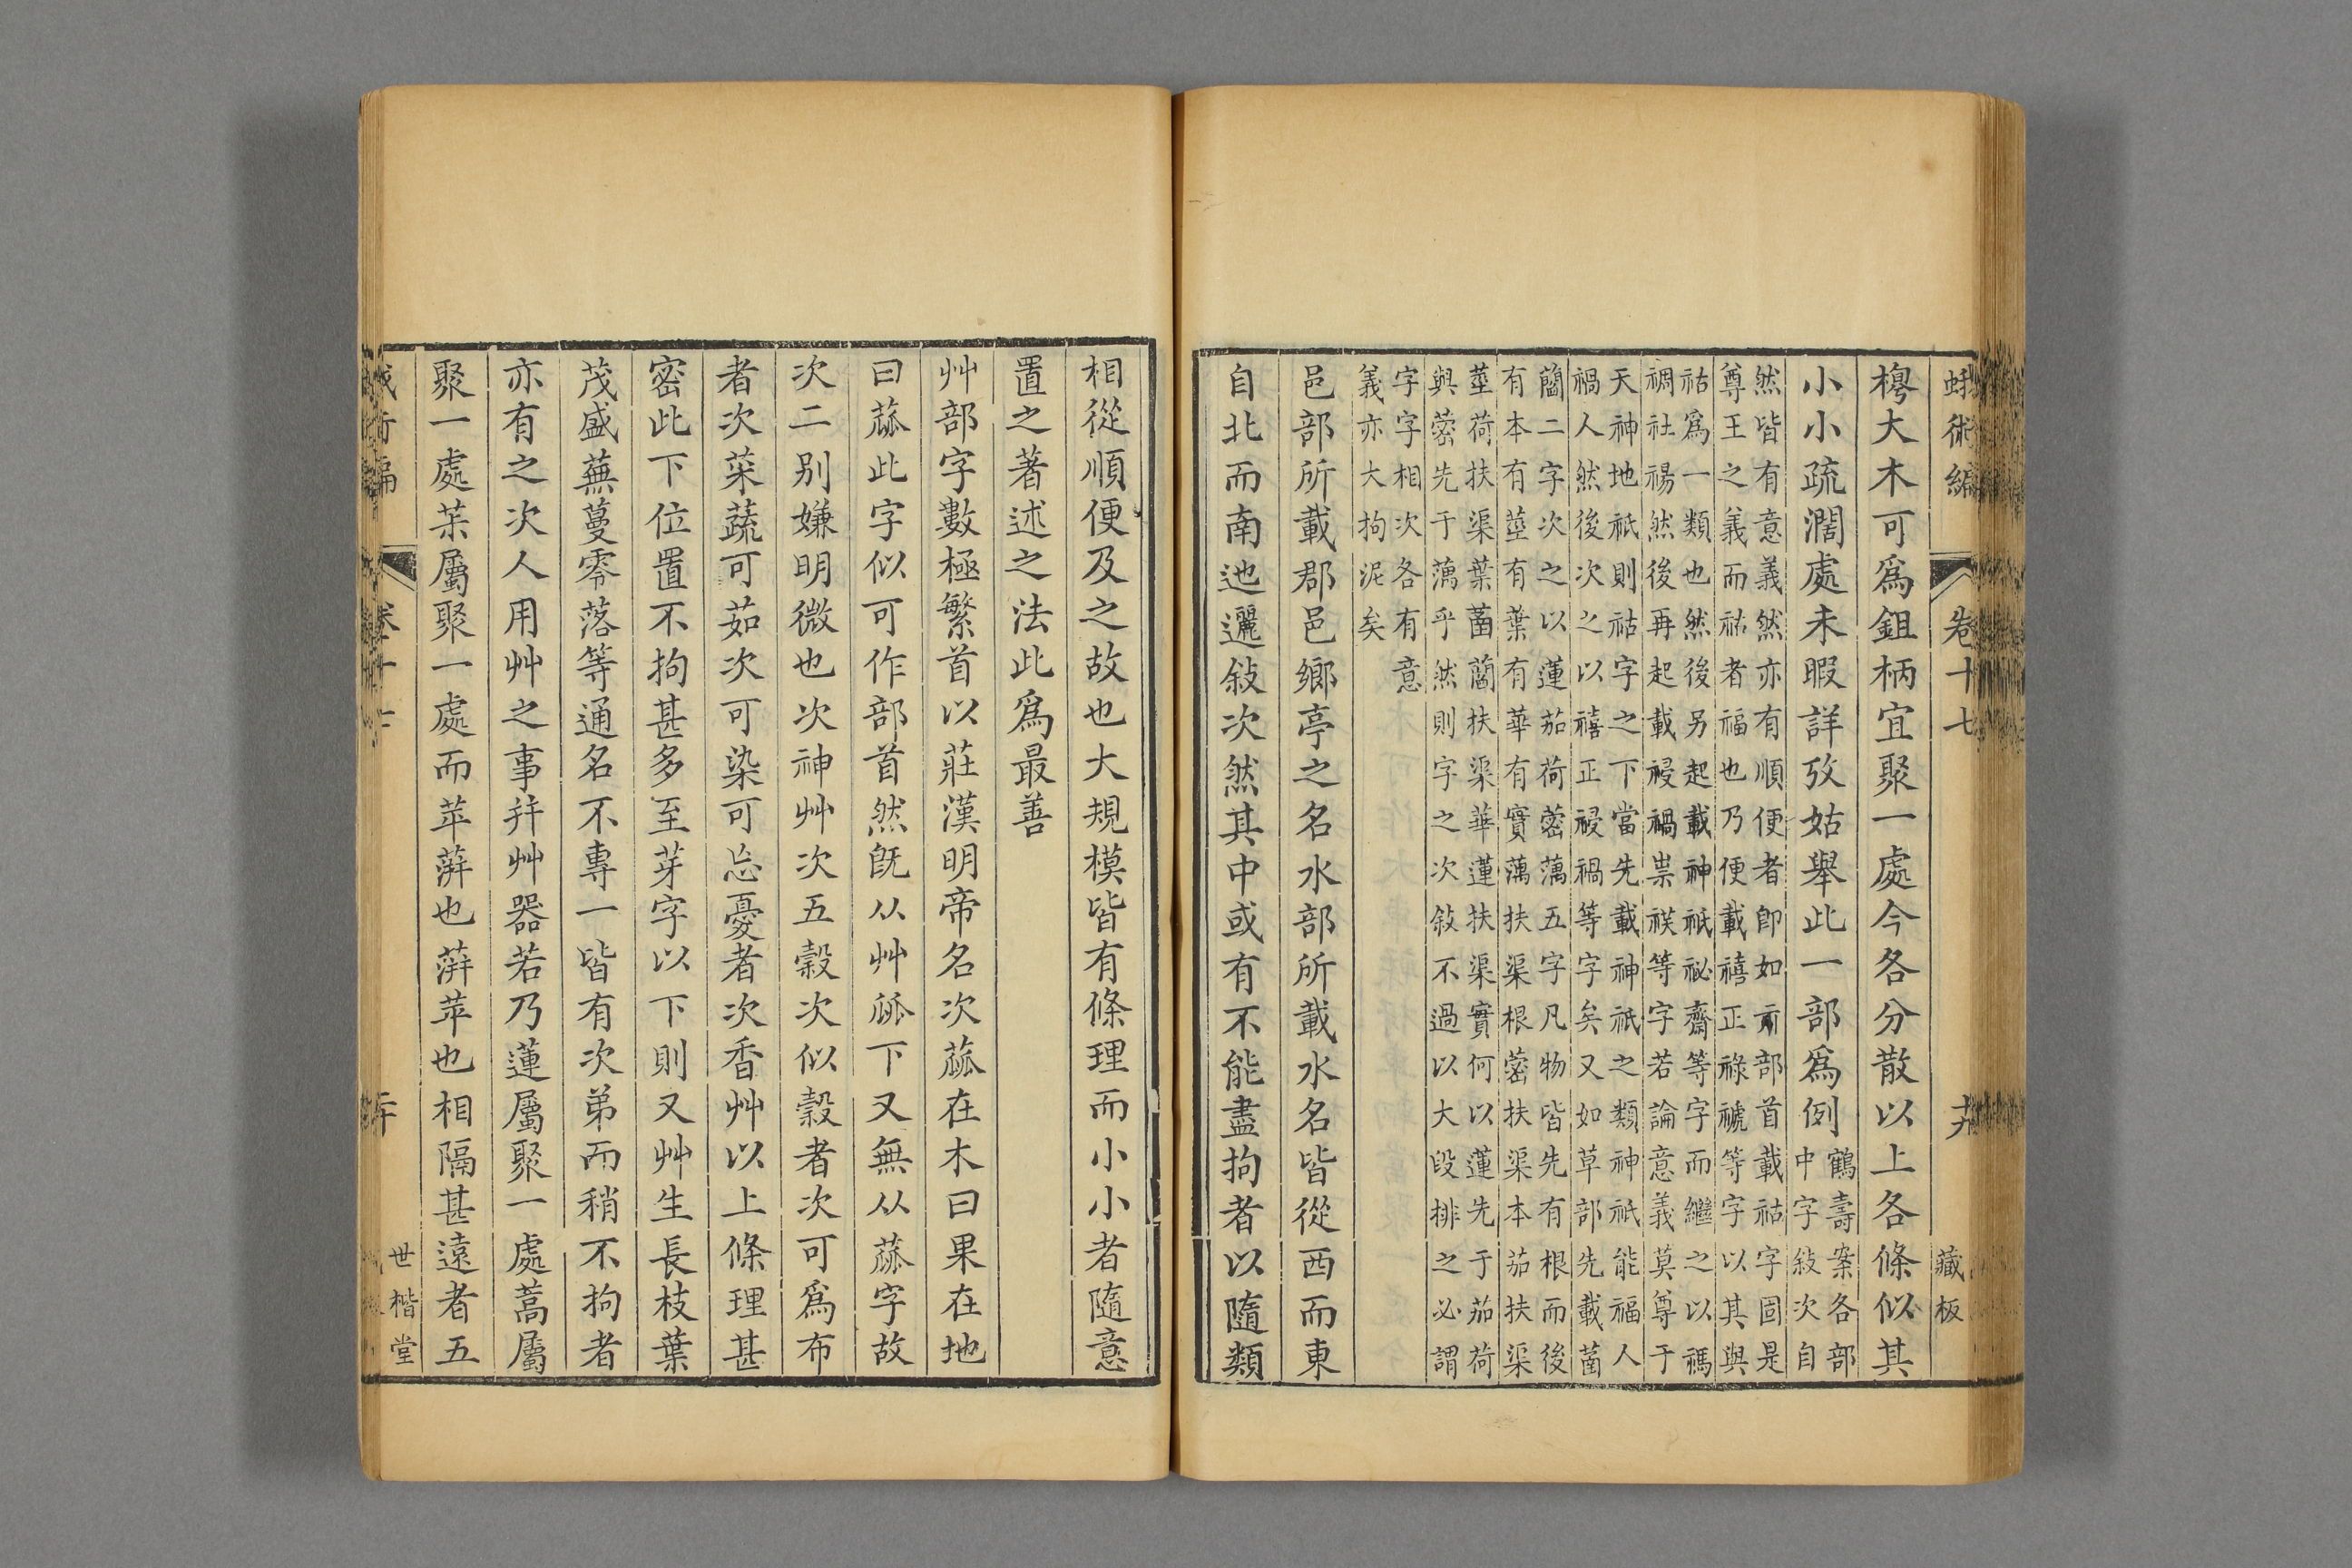 蛾術編 卷十七 十九 藏板
樗大木可爲鉏柄宜聚一處今各分散以上各條似其
小小疏濶處未暇詳攷姑舉此一部爲例
鶴壽案各部
中字敍次自
然皆有意義然亦有順便者卽如示部首載祜字固是
尊王之義而祜者福也乃便載禧正祿禠等字以其與
祜爲一類也然後另起載神祇祕齋等字而繼之以禡
禂社禓然後再起載祲禍祟祅等字若論意義莫尊于
天神地祇則祜字之下當先載神祇之類神祇能福人
禍人然後次之以禧正祲禍等字矣又如草部先載菡
藺二字次之以蓮茄荷蔤蕅五字凡物皆先有根而後
有本有莖有葉有華有實蕅扶渠根蔤扶渠本茄扶渠
莖荷扶渠葉菡藺扶渠華蓮扶渠實何以蓮先于茄荷
與蔤先于蕅乎然則字之次敍不過以大段排之必謂
字字相次各有意
義亦大拘泥矣
邑部所載郡邑鄉亭之名水部所載水名皆從西而東
自北而南迆邐敍次然其中或有不能盡拘者以隨類
相從順便及之故也大規模皆有條理而小小者隨意
置之著述之法此爲最善
艸部字數極繁首以莊漢明帝名次蓏在木曰果在地
曰蓏此字似可作部首然旣从艸㼌下又無从蓏字故
次二别嫌明微也次神艸次五穀次似穀者次可爲布
者次菜蔬可茹次可染可忘憂者次香艸以上條理甚
密此下位置不拘甚多至芽字以下則又艸生長枝葉
茂盛蕪蔓零落等通名不專一皆有次弟而稍不拘者
亦有之次人用艸之事幷艸器若乃蓮屬聚一處蒿屬
聚一處茮屬聚一處而苹蓱也蓱苹也相隔甚遠者五
世楷堂